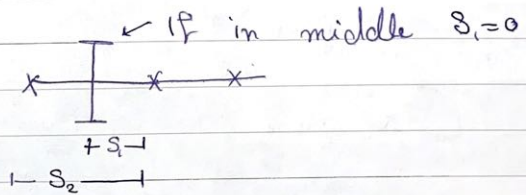 If in middle S₁=0
S₁
S₂